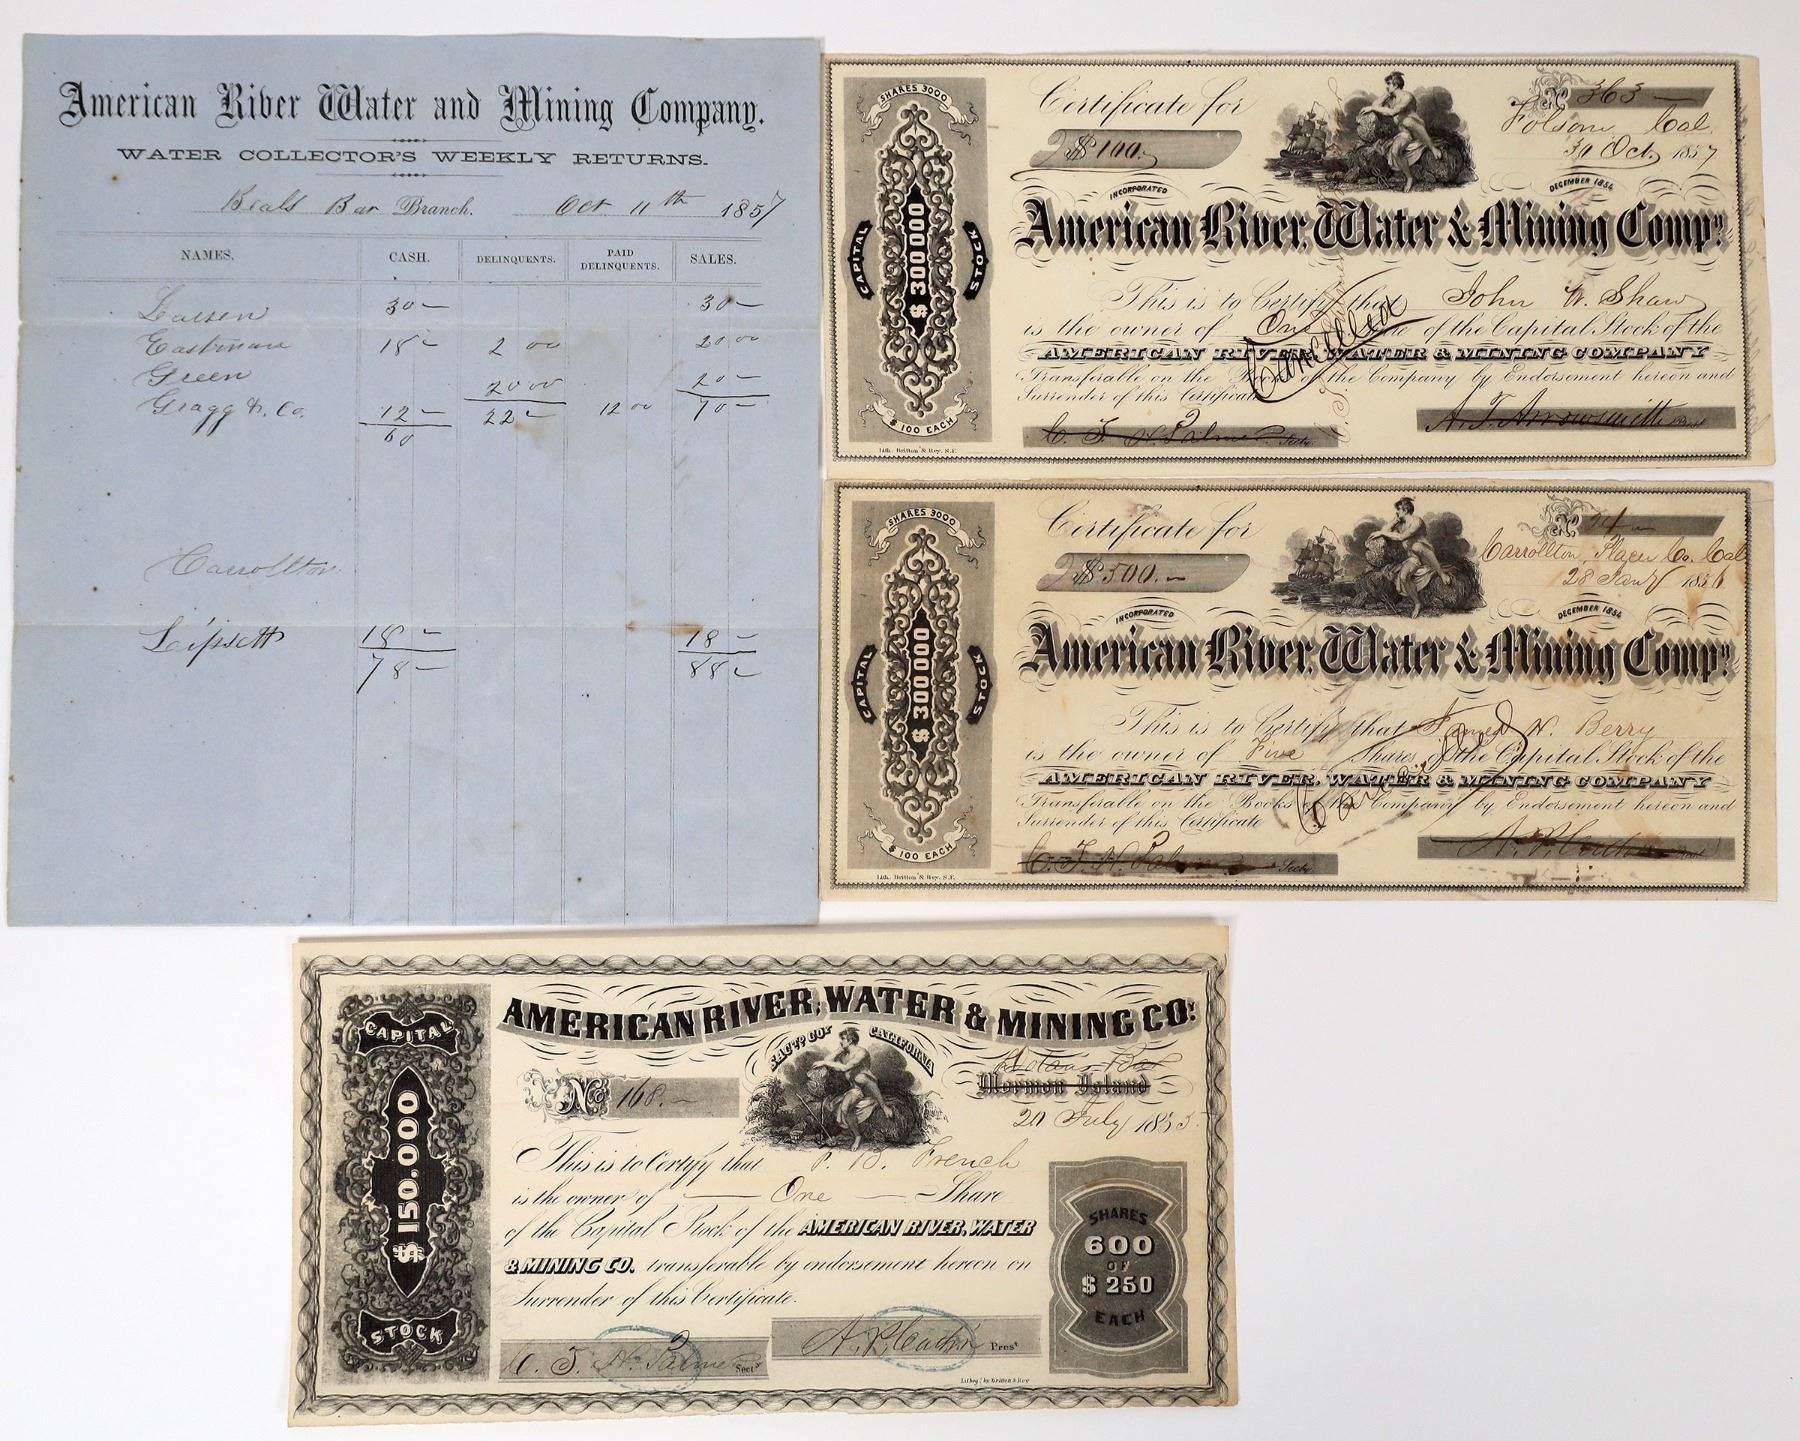 American River Water and Mining Company.
WATER COLLECTOR'S WEEKLY RETURNS.
Beals Bar Branch. Oct 11th 1857
NAMES. CASH. DELINQUENTS. PAID DELINQUENTS. SALES.
Larsen 30 – 30 –
Eastman 18 – 2 00 20 00
Green 20 00 20 –
Gragg & Co. 12 – 22 – 12 00 70 –
60
Carrollton
Lipsett 18 – 18 –
78 – 88 –
SHARES 3000
CAPITAL $300000 STOCK
$100 EACH
Lith. Britton & Rey. S.F.
Certificate for
$100
No 363 –
Folsom Cal.
30 Oct. 1857
INCORPORATED DECEMBER 1854
American River, Water & Mining Compy.
This is to Certify that John W. Shaw
is the owner of One of the Capital Stock of the
AMERICAN RIVER, WATER & MINING COMPANY
Transferable on the Books of the Company by Endorsement hereon and
Surrender of this Certificate
Cancelled
C. T. H. Palmer Secty. A. T. Arrowsmith Prest
SHARES 3000
CAPITAL $300000 STOCK
$100 EACH
Lith. Britton & Rey. S.F.
Certificate for
$500. –
No
Carrollton, Placer Co. Cal
28 Jany 1856
INCORPORATED DECEMBER 1854
American River, Water & Mining Compy.
This is to Certify that James W. Berry
is the owner of Five Shares of the Capital Stock of the
AMERICAN RIVER, WATER & MINING COMPANY
Transferable on the Books of the Company by Endorsement hereon and
Surrender of this Certificate
Cancelled
C. T. H. Palmer Secty. A. P. Catlin Prest
CAPITAL
$150.000
STOCK
AMERICAN RIVER, WATER & MINING CO.Y
SACTO COY CALIFORNIA
No 168. –
Bar
Mormon Island
20 July 1855
This is to Certify that P. B. French
is the owner of — One — Share
of the Capital Stock of the AMERICAN RIVER, WATER
& MINING CO. transferable by endorsement hereon on
Surrender of this Certificate.
SHARES
600
OF
$250
EACH
C. T. H. Palmer Secty A. P. Catlin Prest
Lithogr. by Britton & Rey